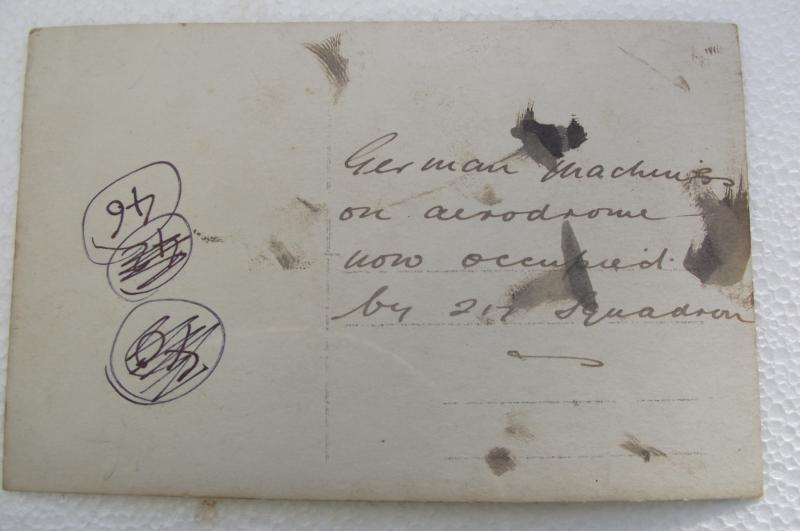 46
German Machines
on aerodrome
now occupied
by 217 Squadron